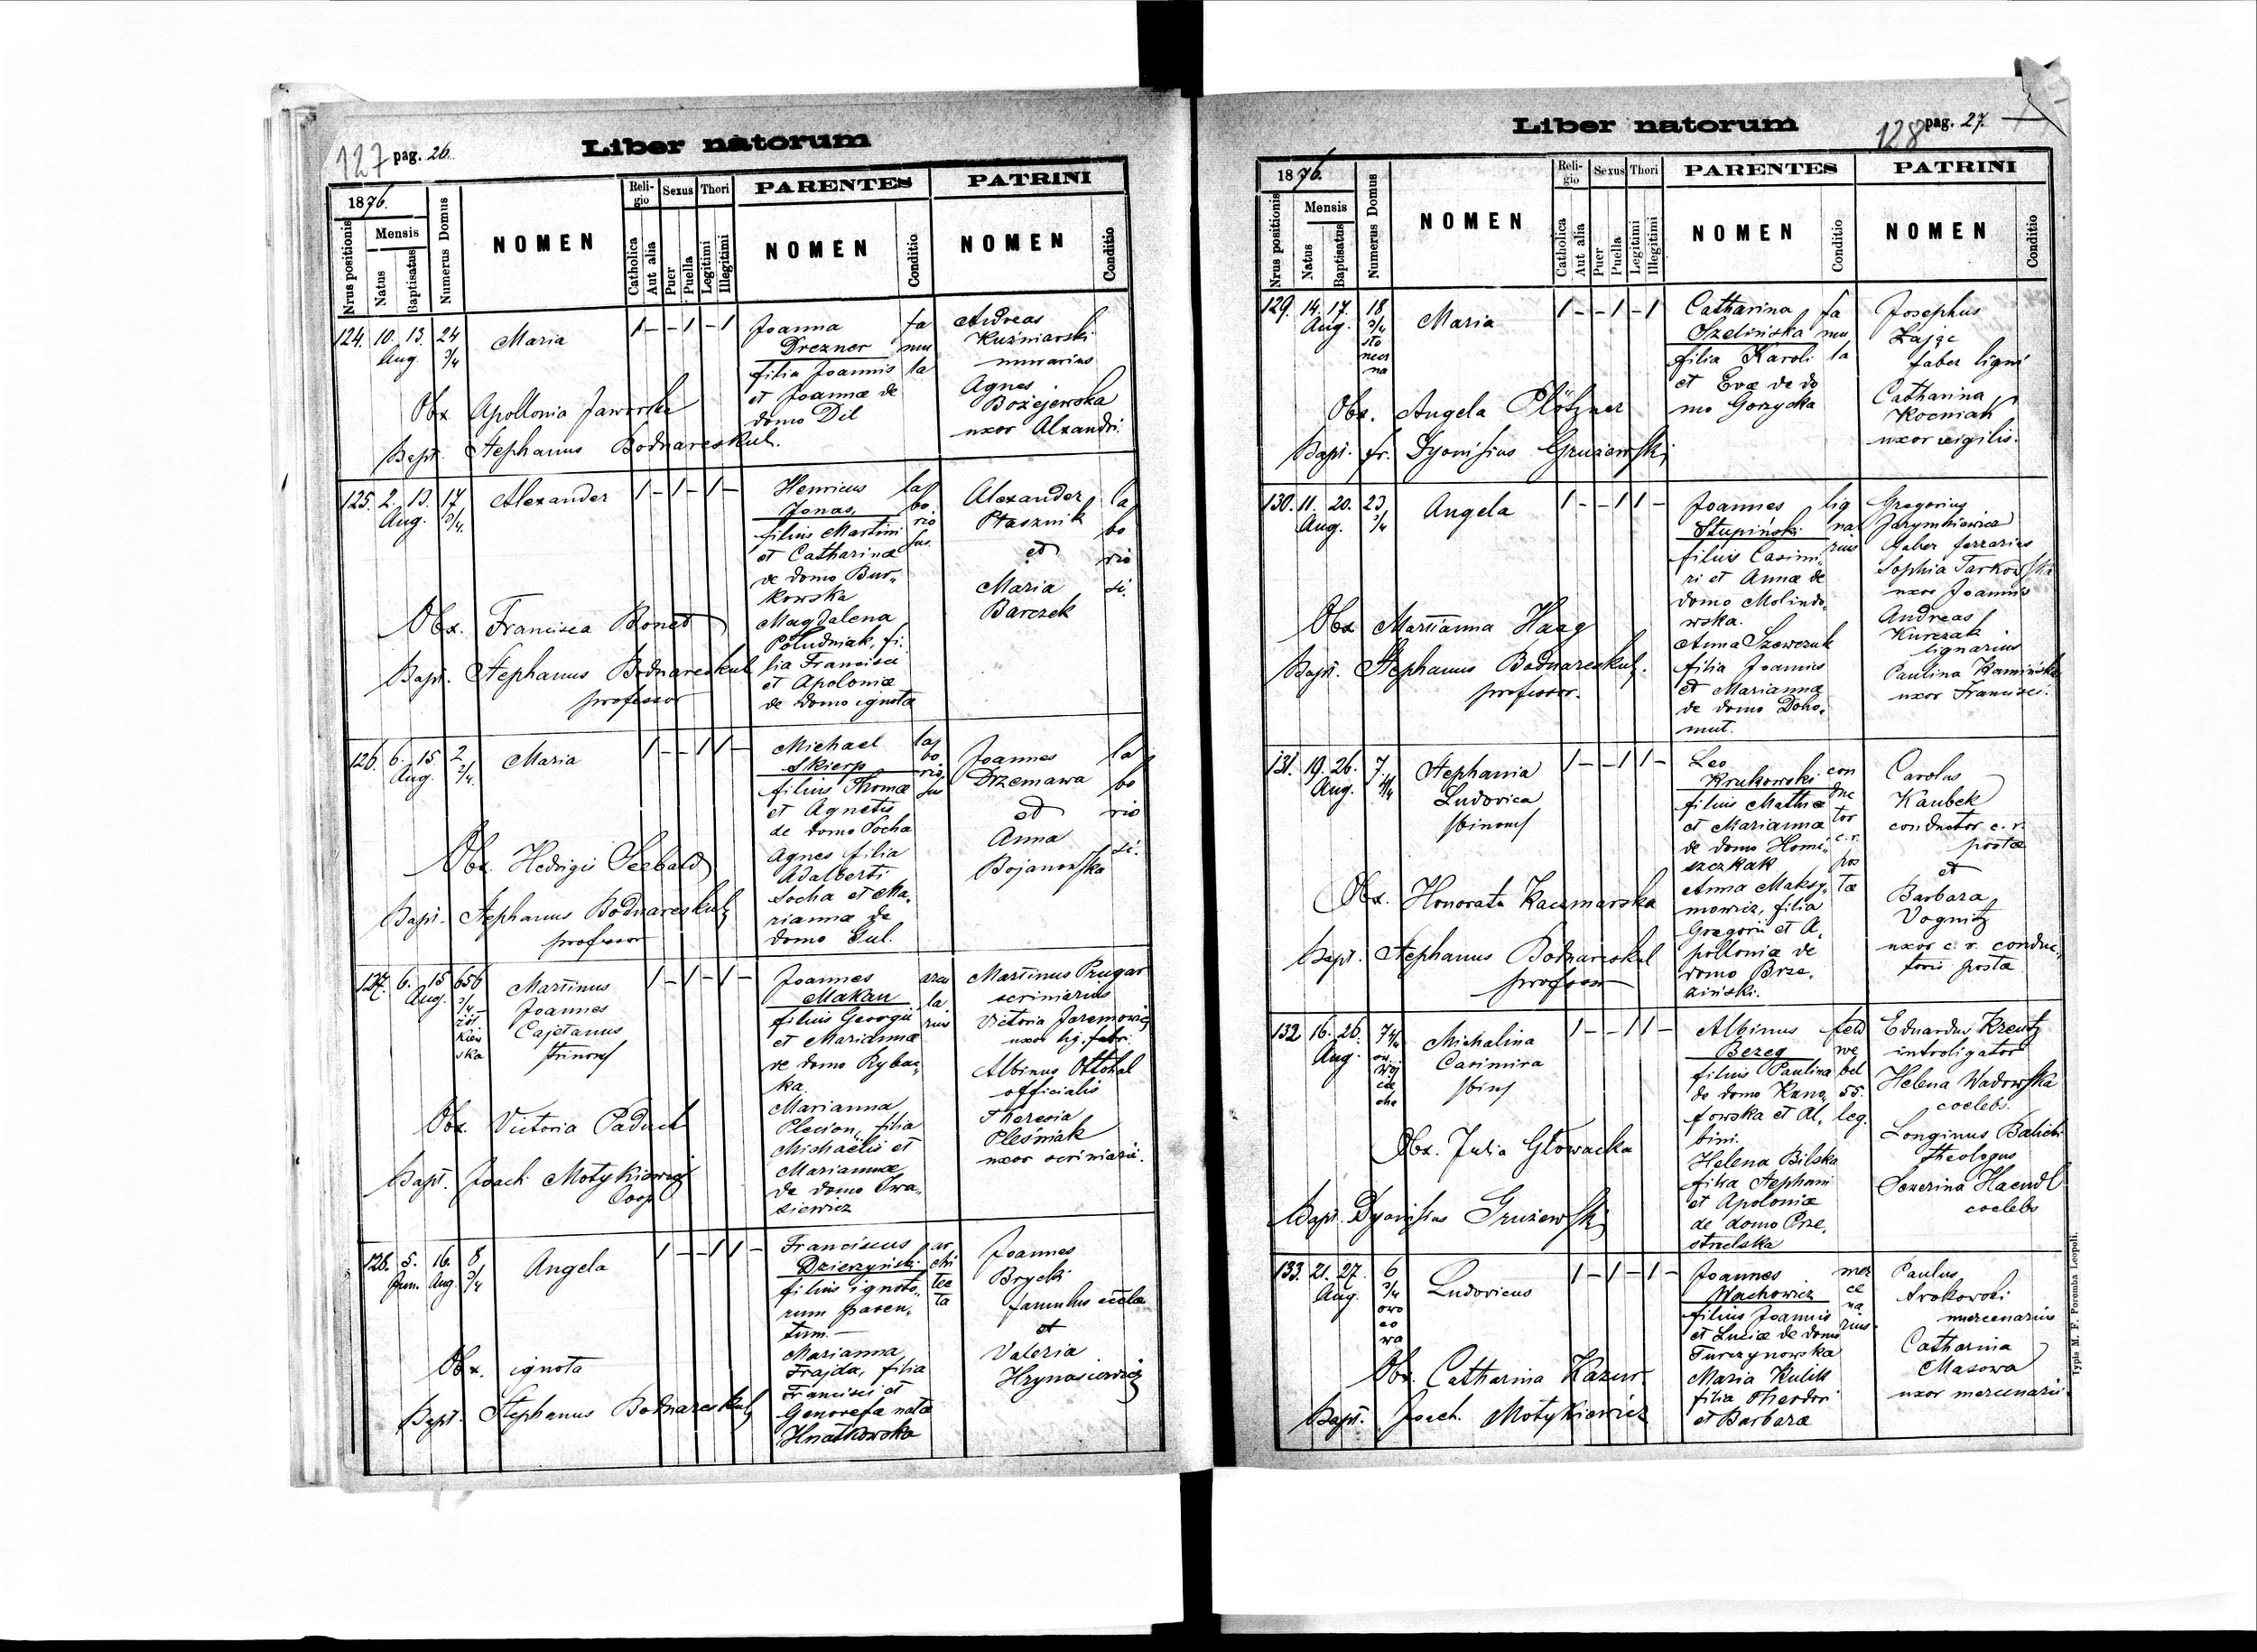 127 pag. 26.
Liber natorum
1876.
Nrus positionis
Mensis
Natus
Baptisatus
Numerus Domus
NOMEN
Religio
Catholica
Aut alia
Sexus
Puer
Puella
Thori
Legitimi
Illegitimi
PARENTES
NOMEN
Conditio
PATRINI
NOMEN
Conditio
124. 10. 13. Aug. 24 3/4
Maria
1 - - 1 - 1
Joanna
Drezner
filia Joannis
et Joannæ de
domo Dil
famula
Andreas
Kuźniarski
murarius
Agnes
Bożejewska
uxor Alxandri.
Obx Apollonia Jaworska
Bapt. Stephanus Bodnareskul.
125. 2. 13. Aug. 17 3/4.
Alexander
1 - 1 - 1 -
Henricus
Jonas,
filius Martini
et Catharinæ
de domo Bur„
kowska
Magdalena
Południak, fi„
lia Francisci
et Apoloniæ
de domo ignota
laboriosus.
Alexander
Ptasznik
et
Maria
Barczek
laboriosi.
Obx. Francisca Bonet
Bapt. Stephanus Bodnareskul
professor
126. 6. 15. Aug. 2 2/4.
Maria
1 - - 1 1 -
Michael
Skierp
filius Thomæ
et Agnetis
de domo Socha
Agnes filia
Adalberti
Socha et Ma„
riannæ de
domo Gul.
laboriosus
Joannes
Drzemawa
et
Anna
Bojanowska
laboriosi.
Obx. Hedvigis Seebald
Bapt. Stephanus Bodnareskul
professor
127. 6. 15 Aug. 656 3/4 żółkiewska
Martinus
Joannes
Cajetanus
trinom
1 - 1 - 1 -
Joannes
Makan
filius Georgii
et Mariannæ
de domo Rybac„
ka
Marianna
Plecion, filia
Michaëlis et
Mariannæ
de domo Iwa„
siewicz
arcularius
Martinus Prugar
scriniarius
Victoria Jaremowicz
uxor lig. fabr.
Albinus Ottohal
officialis
Theresia
Pleśniak
uxor scriniarii.
Obx. Victoria Paduch
Bapt. Joach. Motykiewicz
Coop.
128. 5. Jun. 16. Aug. 8 3/4
Angela
1 - - 1 1 -
Franciscus
Dzierzyński
filius ignoto„
rum paren„
tum.—
Marianna
Frajda, filia
Francisci et
Genovefæ nata
Hnatkowska
architecta
Joannes
Brycki
famulus eccle
et
Valeria
Hrynasiewicz
Obx. ignota
Bapt. Stephanus Bodnareskul
Liber natorum
128 pag. 27.
1876.
Nrus positionis
Mensis
Natus
Baptisatus
Numerus Domus
NOMEN
Religio
Catholica
Aut alia
Sexus
Puer
Puella
Thori
Legitimi
Illegitimi
PARENTES
NOMEN
Conditio
PATRINI
NOMEN
Conditio
129. 14. 17. Aug. 18 3/4 słoneczna
Maria
1 - - 1 - 1
Catharina
Szelińska
filia Karoli
et Evæ de do
mo Gorzycka
famula
Josephus
Zając
faber ligni
Catharina
Kocniak
uxor vigilis.
Obx. Angela Plötzner
Bapt. fr. Dyonisius Gruźewski
130. 11. 20. Aug. 23 3/4
Angela
1 - - 1 1 -
Joannes
Stupiński
filius Casimi„
ri et Annæ de
domo Molindo„
wska.
Anna Szewczuk
filia Joannis
et Mariannæ
de domo Doho„
mut.
lignarius
Gregorius
Jarymkiewicz
faber ferrarius
Sophia Tarkowska
uxor Joannis
Andreas
Kurczak
lignarius
Paulina Kamińska
uxor Francisci.
Obx Marianna Haag
Bapt. Stephanus Bodnareskul.
professor.
131. 19. 26. Aug. 7. 4/4
Stephania
Ludovica
binom
1 - - 1 1 -
Leo
Krukowski
filius Mathiæ
et Mariannæ
de domo Homi„
szczkak
Anna Maksy„
mowicz, filia
Gregorii et A„
polloniæ de
domo Brze„
ziński.
conductor c. r. postæ
Carolus
Kaubek
conductor c. r.
postæ
et
Barbara
Vognitz
uxor c. r. conduc„
toris postæ
Obx. Honorata Kaczmarska
Bapt. Stephanus Bodnareskul
professor
132 16. 26. Aug. 7 4/4
Michalina
Casimira
bin
1 - - 1 1 -
Albinus
Bezeg
filius Paulina
de domo Kano„
fowska et Al„
bini.
Helena Bilska
filia Stephani
et Apoloniæ
de domo Prze„
strzelska
feldwebel 55. leg.
Eduardus Kreutz
introligator
Helena Wadowska
coelebs.
Longinus Balicki
theologus
Severina Haendl
coelebs
Obx. Julia Głowacka
Bapt. Dyonisius Gruźewski
133. 21. 27. Aug. 6 3/4
Ludovicus
1 - 1 - 1 -
Joannes
Wachowicz
filius Joannis
et Luciæ de domo
Turczynowska
Maria Kulik
filia Theodori
et Barbaræ
mercenarius.
Paulus
Srokowski
mercenarius
Catharina
Masowa
uxor mercenarii.
Obx. Catharina Kazur
Bapt. Joach. Motykiewicz
Typis M. F. Poremba Leopoli.